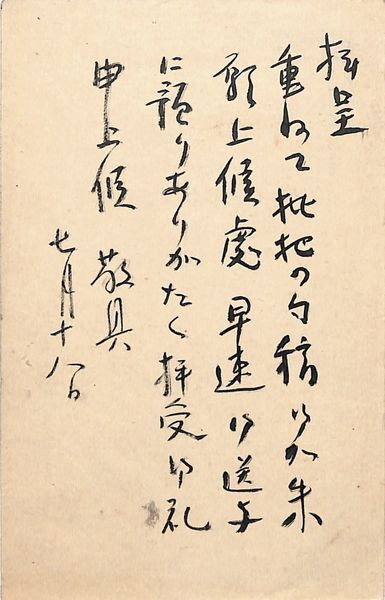 拝呈
重ねて枇杷の句稿御加朱
願上候處早速御送与
に預りありがたく拝受御礼
申上候 敬具
七月十八日